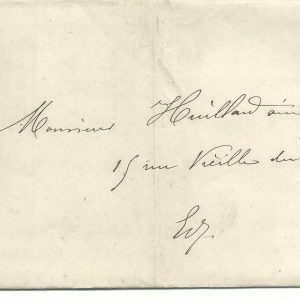 Monsieur Huillard ain
15 rue Vieille du
E.V.